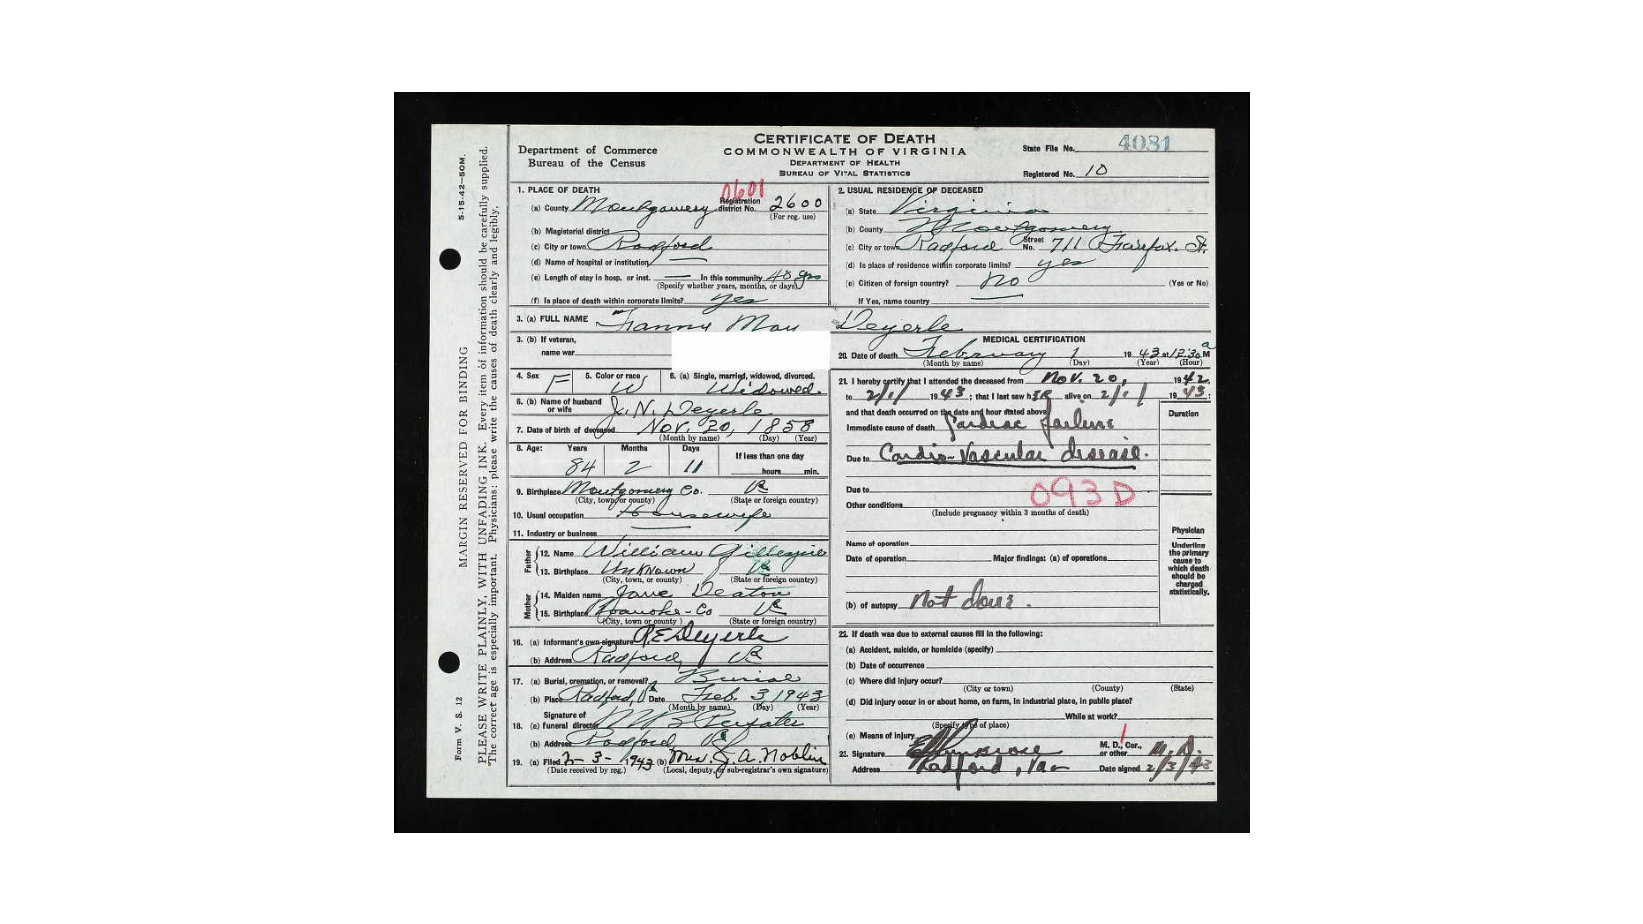 5-15-42-50M.
MARGIN RESERVED FOR BINDING
Form V. S. 12
PLEASE WRITE PLAINLY, WITH UNFADING INK. Every item of information should be carefully supplied.
The correct age is especially important. Physicians: please write the causes of death clearly and legibly.
Department of Commerce
Bureau of the Census
CERTIFICATE OF DEATH
COMMONWEALTH OF VIRGINIA
DEPARTMENT OF HEALTH
BUREAU OF VITAL STATISTICS
State File No. 4031
Registered No. 10
1. PLACE OF DEATH
0601
(a) County Montgomery Registration district No. 2600
(For reg. use)
(b) Magisterial district
(c) City or town Radford
(d) Name of hospital or institution —
(e) Length of stay in hosp. or inst. — In this community 48 yrs
(Specify whether years, months, or days)
(f) Is place of death within corporate limits? yes
2. USUAL RESIDENCE OF DECEASED
(a) State Virginia
(b) County Montgomery
(c) City or town Radford Street No. 711 Fairfax St.
(d) Is place of residence within corporate limits? yes
(e) Citizen of foreign country? No (Yes or No)
If Yes, name country —
3. (a) FULL NAME Fanny May Deyerle
3. (b) If veteran,
name war
4. Sex F 5. Color or race W 6. (a) Single, married, widowed, divorced. Widowed
6. (b) Name of husband or wife J. N. Deyerle
7. Date of birth of deceased Nov. 20, 1858
(Month by name) (Day) (Year)
8. Age: Years Months Days If less than one day
84 2 11 hours min.
9. Birthplace Montgomery Co. Va
(City, town or county) (State or foreign country)
10. Usual occupation Housewife
11. Industry or business —
Father
12. Name William Gillespie
13. Birthplace Unknown Va
(City, town, or county) (State or foreign country)
Mother
14. Maiden name Jane Deaton
15. Birthplace Roanoke-Co Va
(City, town or county) (State or foreign country)
16. (a) Informant's own signature R.E. Deyerle
(b) Address Radford, Va
17. (a) Burial, cremation, or removal? Burial
(b) Place Radford, Va Date Feb. 3 1943
(Month by name) (Day) (Year)
18. Signature of
(a) funeral director
(b) Address Radford Va
19. (a) Filed 2-3-1943 (b) Mrs. J. A. Noblin
(Date received by reg.) (Local, deputy, or sub-registrar's own signature)
MEDICAL CERTIFICATION
20. Date of death February 1 1943 at 12:30 a M
(Month by name) (Day) (Year) (Hour)
21. I hereby certify that I attended the deceased from Nov. 20, 1942
to 2/1/ 1943; that I last saw her alive on 2/1/ 1943;
and that death occurred on the date and hour stated above.
Duration
Immediate cause of death Cardiac failure
Due to Cardio-Vascular disease.
Due to
093D
Other conditions
(Include pregnancy within 3 months of death)
Name of operation
Date of operation Major findings: (a) of operations
(b) of autopsy Not done.
Physician
Underline the primary cause to which death should be charged statistically.
22. If death was due to external causes fill in the following:
(a) Accident, suicide, or homicide (specify)
(b) Date of occurrence
(c) Where did injury occur?
(City or town) (County) (State)
(d) Did injury occur in or about home, on farm, in industrial place, in public place?
While at work?
(Specify type of place)
(e) Means of injury
23. Signature M. D., Cor., or other M.D.
Address Radford, Va Date signed 2/3/43